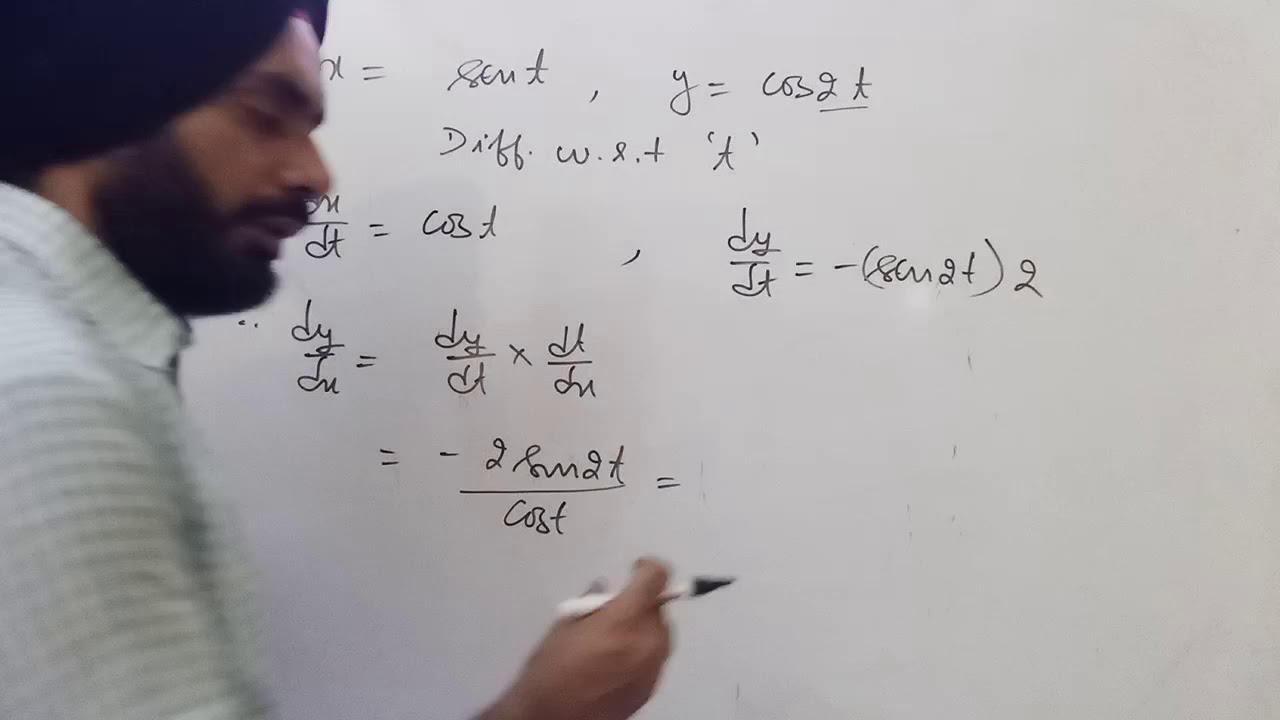 x = sin t , y = cos 2t
Diff. w.r.t 't'
dx/dt = cos t , dy/dt = -(sin 2t) 2
∵ dy/dx = dy/dt × dt/dx
= - 2 sin 2t / cos t =